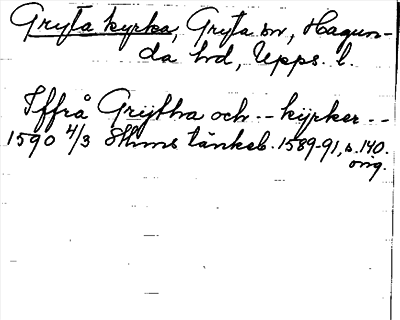 Gryta kyrka, Gryta sn, Hagun-
da hd, Upps. l.
Iffrå Grÿtha och -- kÿrker --
1590 4/3 Sthms tänkeb. 1589-91, s. 140.
orig.